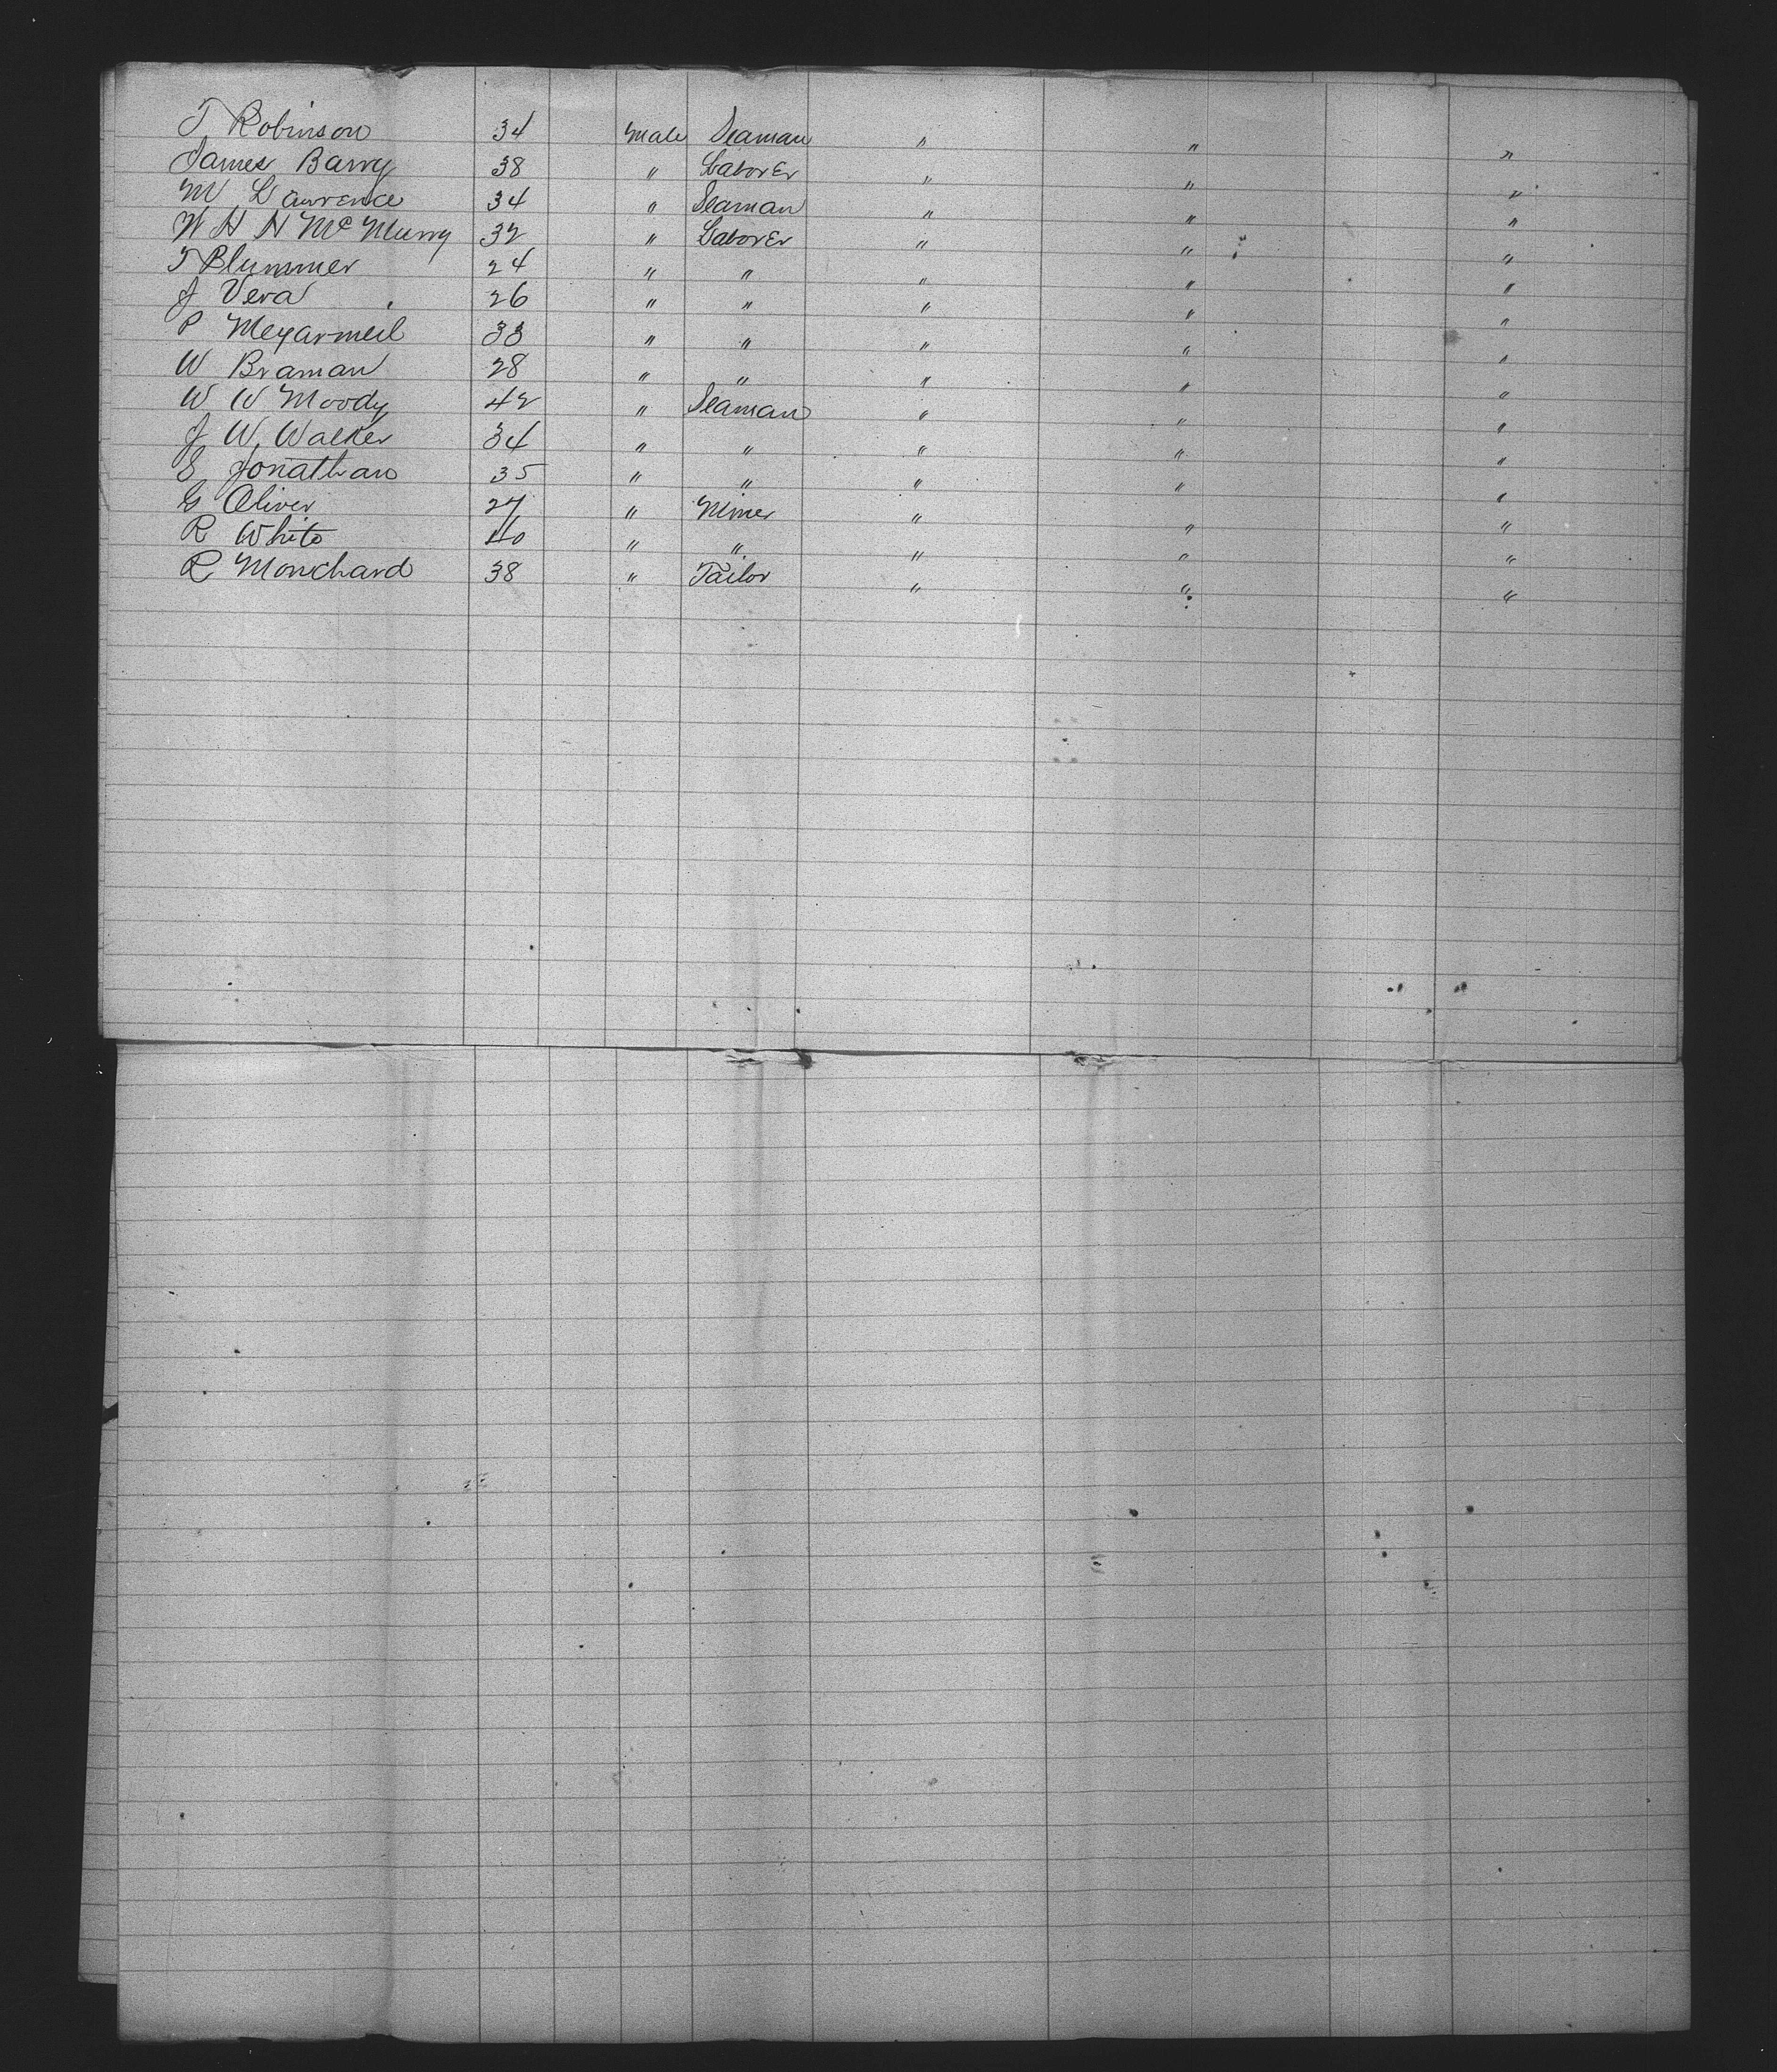 T Robinson 34 Male Seaman " " "
James Barry 38 " Laborer " " "
M Lawrence 34 " Seaman " " "
W H H McMurry 32 " Laborer " " "
T Blummer 24 " " " " "
J Vera 26 " " " " "
P Meyarmeil 33 " " " " "
W Braman 28 " " " " "
W W Moody 42 " Seaman " " "
J W Walker 34 " " " " "
S Jonathan 35 " " " " "
G Oliver 27 " Miner " " "
R White 40 " " " " "
R Monchard 38 " Tailor " " "